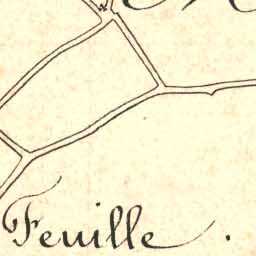 Feuille .